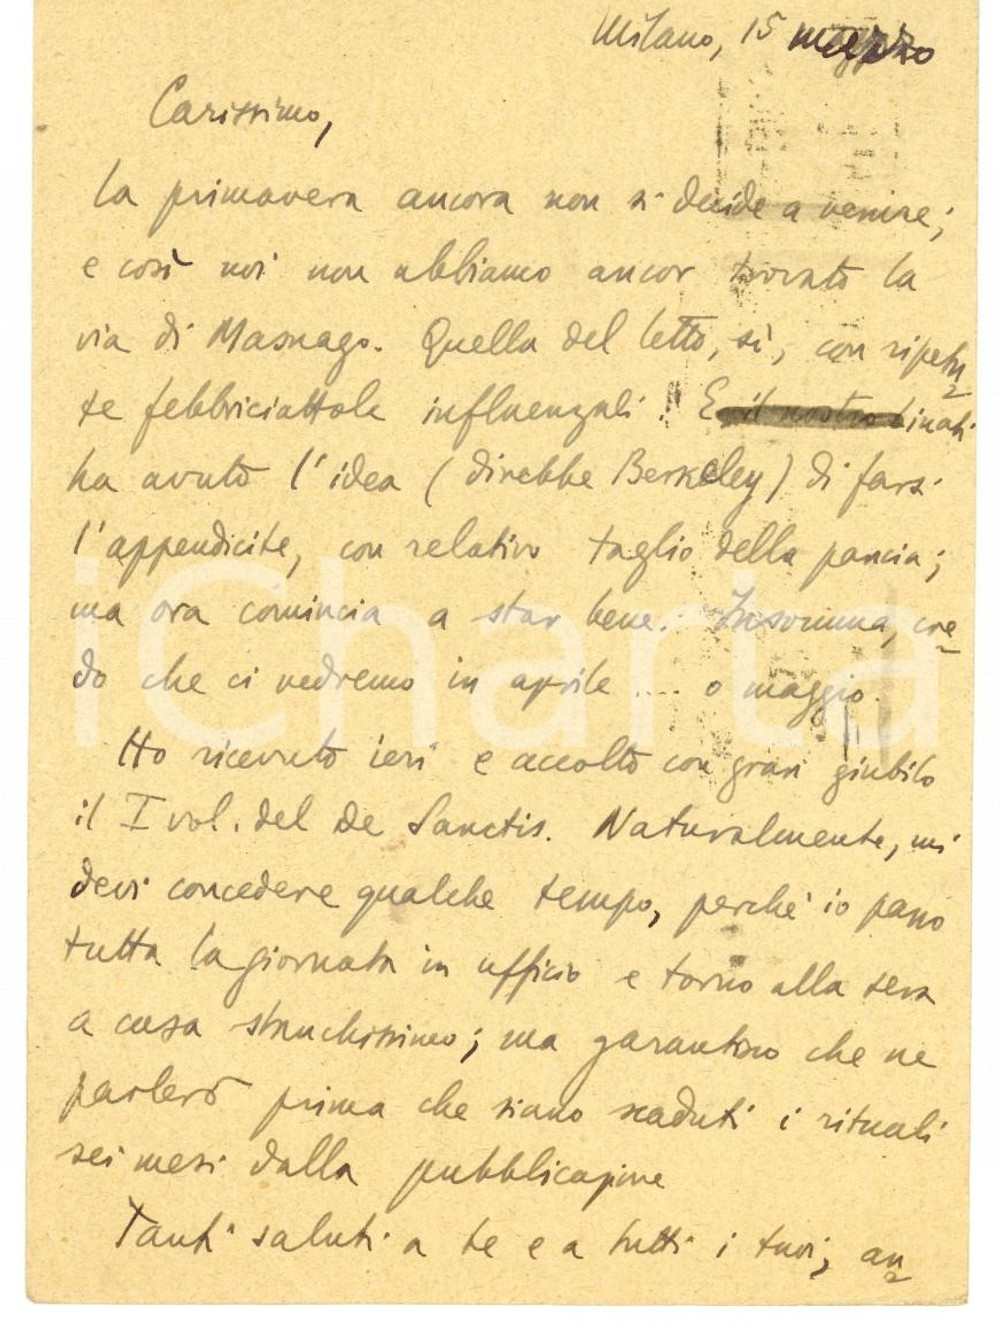 Milano, 15 marzo
Carissimo,
la primavera ancora non si decide a venire;
e così noi non abbiamo ancor trovato la
via di Masnago. Quella del letto, sì, con ripetu=
te febbriciattole influenzali! E il nostro Linati
ha avuto l'idea (direbbe Berkeley) di farsi
l'appendicite, con relativo taglio della pancia;
ma ora comincia a star bene. Insomma, cre=
do che ci vedremo in aprile .... o maggio.
Ho ricevuto ieri e accolto con gran giubilo
il I vol. del De Sanctis. Naturalmente, mi
devi concedere qualche tempo, perché io passo
tutta la giornata in ufficio e torno alla sera
a casa stanchissimo; ma garantisco che ne
parlerò prima che siano scaduti i rituali
sei mesi dalla pubblicazione
Tanti saluti a te e a tutti i tuoi, an=
iCharta